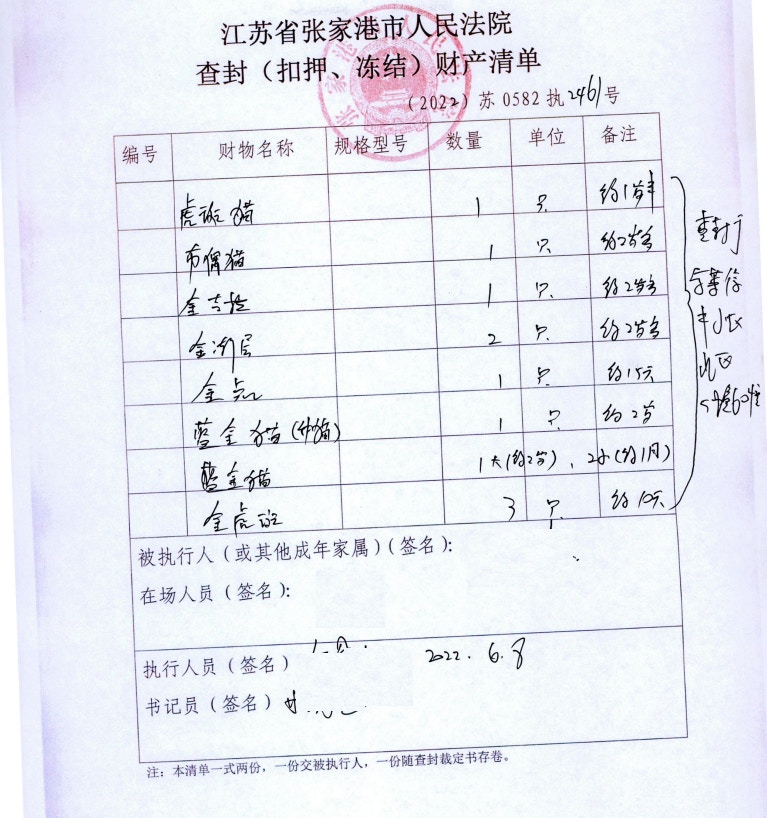 江苏省张家港市人民法院
查封（扣押、冻结）财产清单
（2022）苏 0582 执2461号
编号 财物名称 规格型号 数量 单位 备注
虎斑猫 1 只 约1岁半
布偶猫 1 只 约2岁多
金吉拉 1 只 约2岁多
金渐层 2 只 约2岁多
金点 1 只 约15天
蓝金猫(种猫) 1 只 约2岁
蓝金猫 1大(约2岁)、2小(约1月)
金虎斑 3 只 约10天
查封于
小区
被执行人（或其他成年家属）(签名):
在场人员（签名）:
执行人员（签名） 2022.6.8
书记员（签名）
注：本清单一式两份，一份交被执行人，一份随查封裁定书存卷。